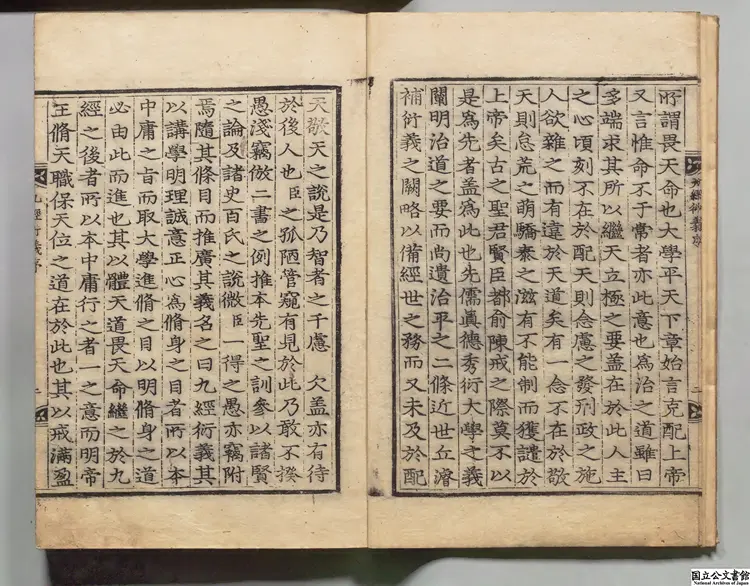 九經衍義序
二
所謂畏天命也大學平天下章始言克配上帝
又言惟命不于常者亦此意也爲治之道雖曰
多端求其所以繼天立極之要盖在於此人主
之心頃刻不在於配天則念慮之發刑政之施
人欲雜之而有違於天道矣有一念不在於敬
天則怠荒之萌驕泰之滋有不能制而獲譴於
上帝矣古之聖君賢臣都俞陳戒之際莫不以
是爲先者盖爲此也先儒眞德秀衍大學之義
闡明治道之要而尚遺治平之二條近世丘濬
補衍義之闕略以備經世之務而又未及於配
天敬天之說是乃智者之千慮欠盖亦有待
於後人也臣之孤陋管窺有見於此乃敢不揆
愚淺竊倣二書之例推本先聖之訓參以諸賢
之論及諸史百氏之說微臣一得之愚亦竊附
焉隨其條目而推廣其義名之曰九經衍義其
以講學明理誠意正心爲脩身之目者所以本
中庸之旨而取大學進脩之目以明脩身之道
必由此而進也其以體天道畏天命繼之於九
經之後者所以本中庸行之者一之意而明帝
王脩天職保天位之道在於此也其以戒滿盈
九經衍義序
国立公文書館
National Archives of Japan